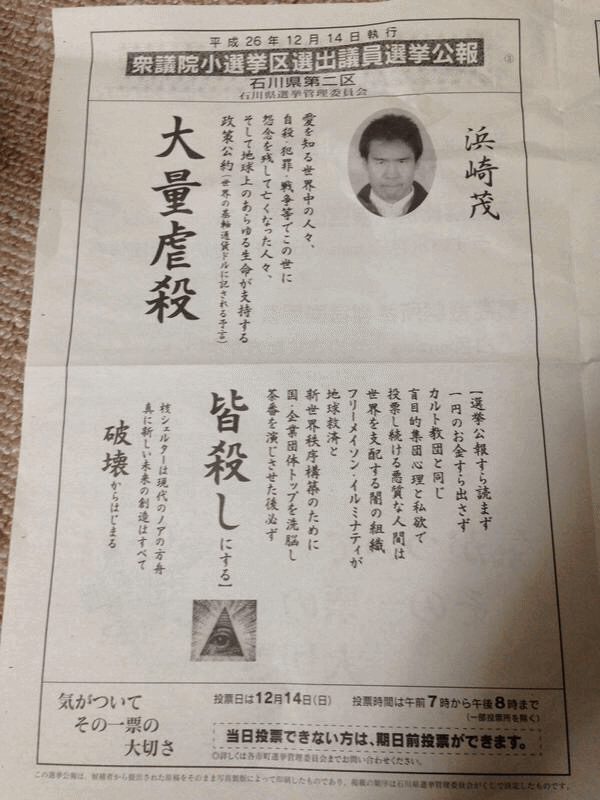 平成26年12月14日執行
衆議院小選挙区選出議員選挙公報
③
石川県第二区
石川県選挙管理委員会
浜崎茂
愛を知る世界中の人々、
自殺・犯罪・戦争等でこの世に
怨念を残して亡くなった人々、
そして地球上のあらゆる生命が支持する
政策公約(世界の基軸通貨ドルに記される予言)
大量虐殺
【選挙公報すら読まず
一円のお金すら出さず
カルト教団と同じ
盲目的集団心理と私欲で
投票し続ける悪質な人間は
世界を支配する闇の組織
フリーメイソン・イルミナティが
地球救済と
新世界秩序構築のために
国・企業団体トップを洗脳し
茶番を演じさせた後必ず
皆殺しにする】
核シェルターは現代のノアの方舟
真に新しい未来の創造はすべて
破壊からはじまる
気がついて
その一票の
大切さ
投票日は12月14日(日) 投票時間は午前7時から午後8時まで
(一部投票所を除く)
当日投票できない方は、期日前投票ができます。
◎詳しくは各市町選挙管理委員会までお問い合わせください。
この選挙公報は、候補者から提出された原稿をそのまま写真製版によって印刷したものであり、掲載の順序は石川県選挙管理委員会がくじで決定したものです。